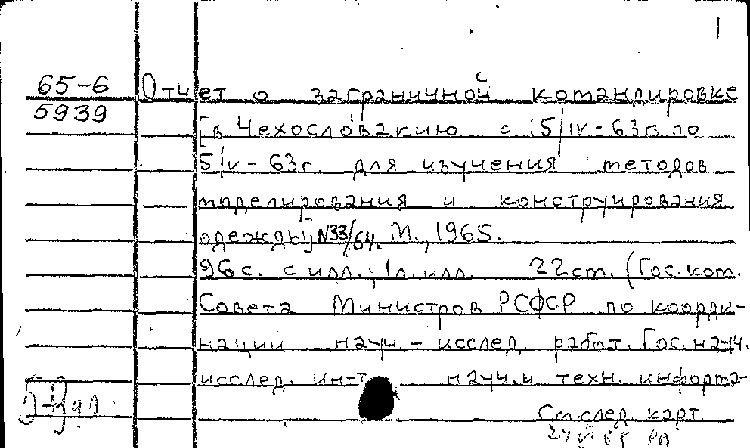 65-6
5939
Отчет о заграничной командировке
[в Чехословакию с 5/IV-63г. по
5/V-63г. для изучения методов
моделирования и конструирования
одежды] N33/64. М., 1965.
96с. с илл.; 1л. илл. 22см. (Гос. ком.
Совета Министров РСФСР по коорди-
нации науч.-исслед. работ. Гос. науч.
исслед. ин-т науч. и техн. информа-
См. след. карт.